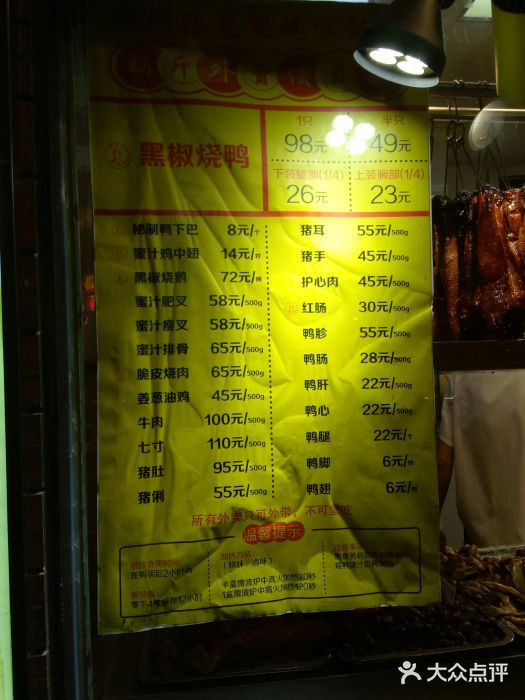 斤外賣價目
1只
半只
黑椒烧鸭
98元
49元
下装腿部(1/4)
上装胸部(1/4)
26元
23元
秘制鸭下巴 8元/个
蜜汁鸡中翅 14元/
黑椒烧鹅 72元/
蜜汁肥叉 58元/500g
蜜汁瘦叉 58元/500g
蜜汁排骨 65元/500g
脆皮烧肉 65元/500g
姜葱油鸡 45元/500g
牛肉 100元/500g
七寸 110元/500g
猪肚 95元/500g
猪俐 55元/500g
猪耳 55元/500g
猪手 45元/500g
护心肉 45元/500g
红肠 30元/500g
鸭胗 55元/500g
鸭肠 28元/500g
鸭肝 22元/500g
鸭心 22元/500g
鸭腿 22元/个
鸭脚 6元/
鸭翅 6元/
所有外卖只可外带，不可堂吃
温馨提示
最佳食用时间：
在购买后2小时内
保持做
零下4度保存12小时
加热方法：
（烧味、卤味）
半盒微波炉中高火加热60秒
1盒微波炉中高火加热120秒
注意事项
大众点评